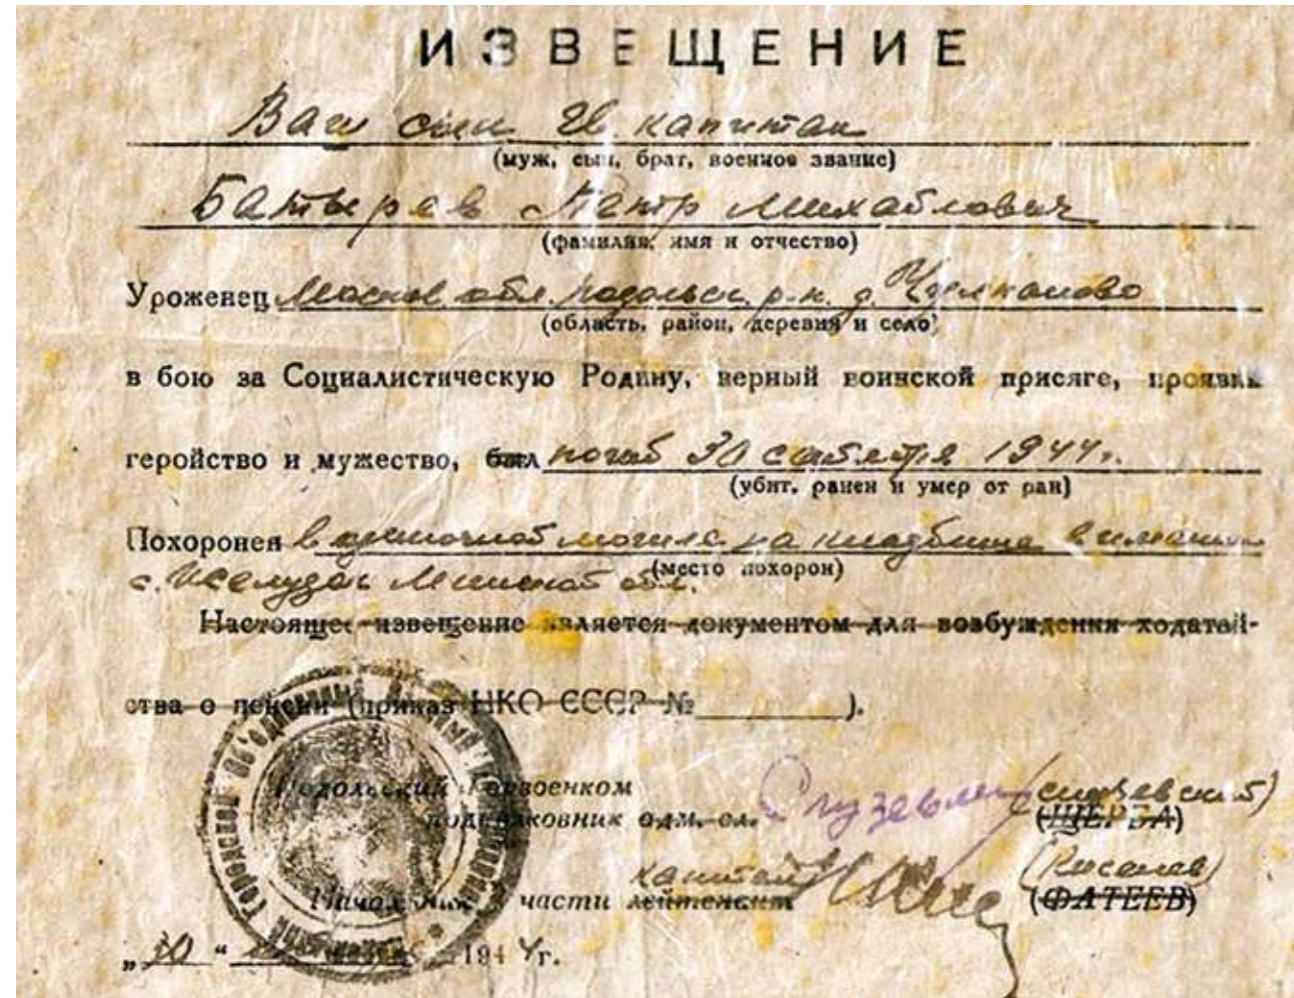 ИЗВЕЩЕНИЕ
Ваш сын Гв. капитан
(муж, сын, брат, военное звание)
Батырев Петр Михайлович
(фамилия, имя и отчество)
Уроженец Москов. обл. Подольск. р-н. д.
(область, район, деревня и село)
в бою за Социалистическую Родину, верный воинской присяге, проявив
геройство и мужество, был погиб 30 1944 г.
(убит, ранен и умер от ран)
Похоронен в могиле на кладбище
(место похорон)
с. Минской обл.
Настоящее извещение является документом для возбуждения ходатай-
ства о пенсии (приказ НКО СССР № ).
Подольский Горвоенком
подполковник адм. сл. (ЩЕРБА)
капитан (Киселев)
Начальник части лейтенант (ФАТЕЕВ)
„30“ 1944г.